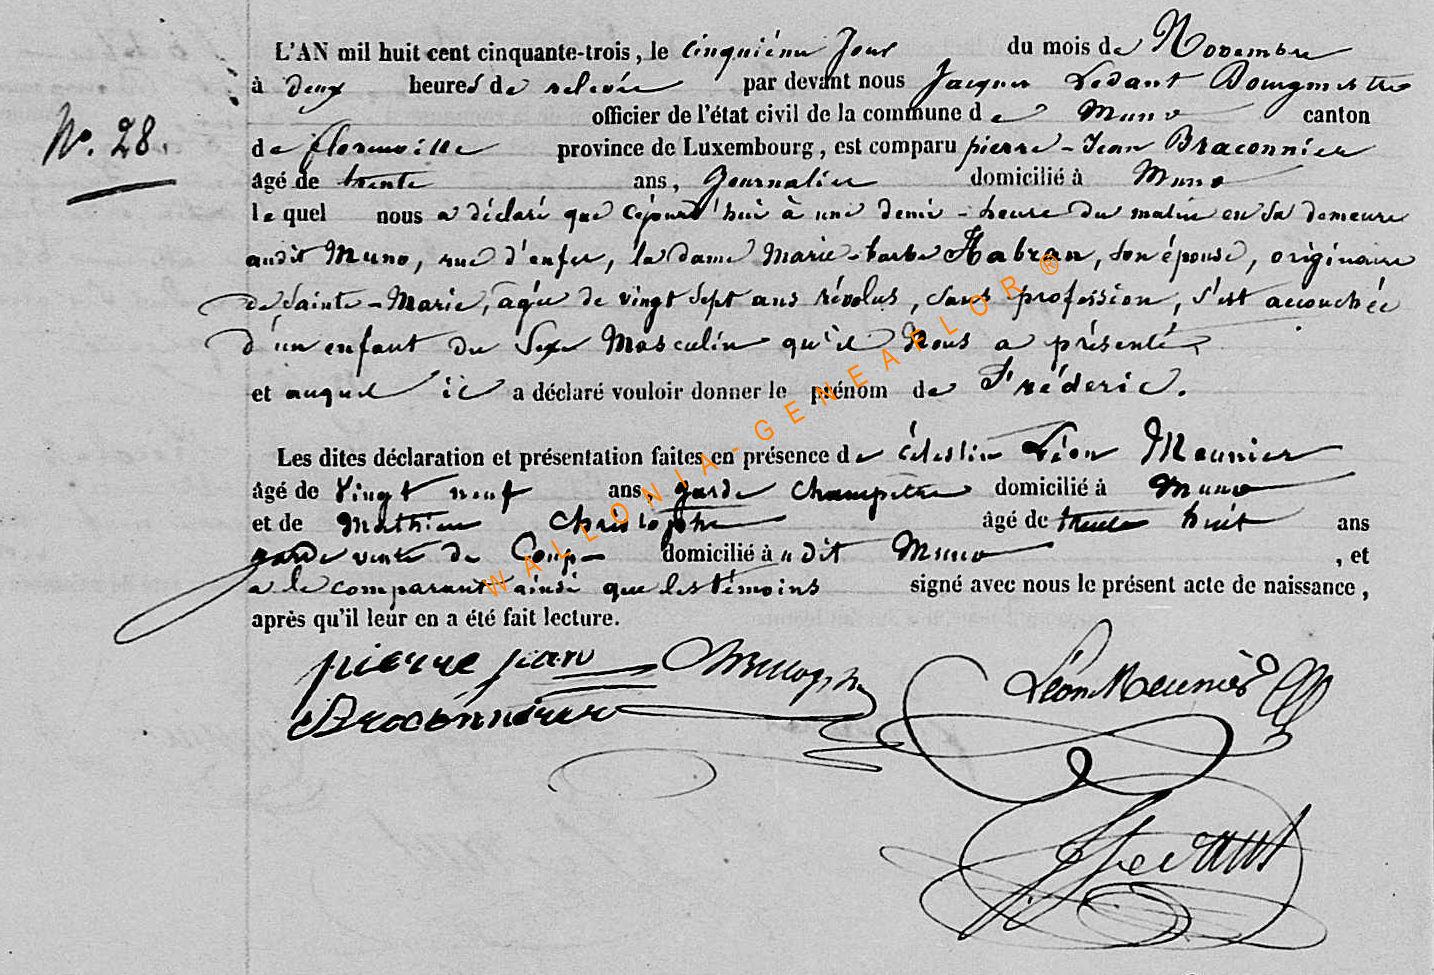 L'AN mil huit cent cinquante-trois, le cinquième Jour du mois de Novembre
à deux heures de relevée par devant nous Jacques Ledant Bourgmestre
officier de l'état civil de la commune de Muno canton
de florenville province de Luxembourg, est comparu pierre-Jean Braconnier
N°. 28.
âgé de trente ans, Journalier domicilié à Muno
lequel nous a déclaré que cejourd'hui à une demi-heure du matin en sa demeure
audit Muno, rue d'enfer, la dame Marie-barbe Habran, son épouse, originaire
de Sainte-Marie, agée de vingt sept ans révolus, sans profession, s'est accouchée
d'un enfant du Sexe Masculin qu'il Nous a présenté
et auquel il a déclaré vouloir donner le prénom de Fréderic.
Les dites déclaration et présentation faites en présence de célestin Léon Meunier
âgé de Vingt neuf ans, garde champetre domicilié à Muno
et de Mathieu Christophe âgé de trente huit ans
garde vente de Coupe domicilié à udit Muno, et
a le comparant ainsi que les témoins signé avec nous le présent acte de naissance,
après qu'il leur en a été fait lecture.
pierre jean Christophe Léon Meunier
Braconnier
JLedant
WALLONIA-GENEAFLOR ®